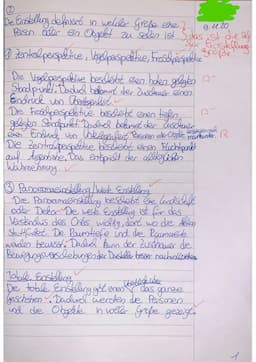 ①
Die Einstellung definiert in welcher Größe eine
Person oder ein Objekt zu sehen ist.
Das ist die
Einstellungs-
größe
② Zentralperspektive, Vogelperspektive, Froschperspektive
Die Vogelperspektive beschreibt einen hohen gelegten
Standpunkt. Dadurch bekommt der Zuschauer einen
Eindruck von
Die Froschperspektive beschreibt einen tiefen
gelegten Standpunkt. Dadurch bekommt der Zuschauer
einen Eindruck von Unterlegenheit. Personen oder Objekte
Die Zentralperspektive beschreibt einen Fluchtpunkt
auf Augenhöhe. Das entspricht der alltäglichen
Wahrnehmung.
③ Panoramaeinstellung/Weite Einstellung
Die Panoramaeinstellung beschreibt eine Landschaft
oder Die weite Einstellung ist für das
Verständnis des Ortes wichtig, dort wo die Aktion
stattfindet. Die Raumtiefe und die Raumweite
werden bewusst. Dadurch kann der Zuschauer die
Bewegungsverschiebungen der Darsteller besser nachvollziehen.
Totale Einstellung
Die totale Einstellung gibt einen Überblick über das ganze
Geschehen. Dadurch werden die Personen
und die Objekte in voller Größe gezeigt.
1